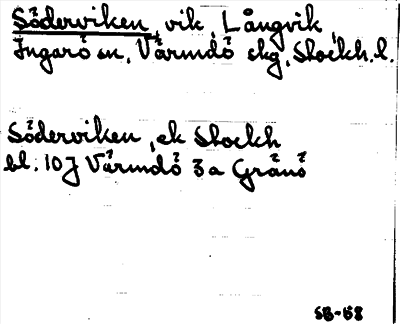 Söderviken, vik, Långvik,
Ingarö sn, Värmdö skg, Stockh. l.
Söderviken, ek Stockh
bl. 10J Värmdö 3a Grönö
SB-68